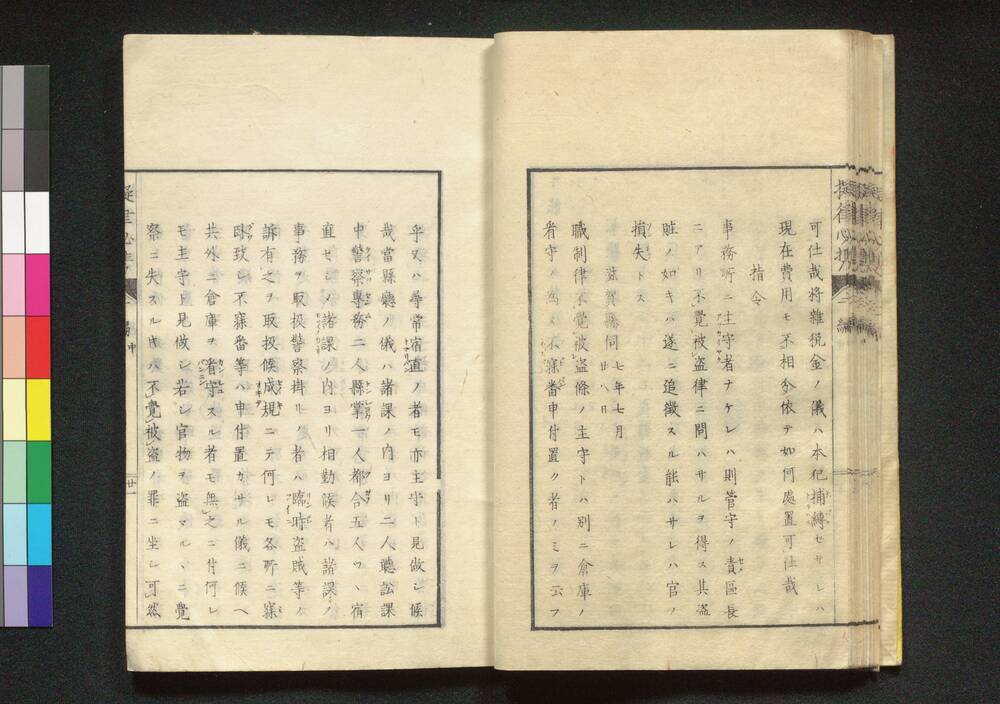 可仕哉将雜税金ノ儀ハ本犯捕縛セサレハ
現在費用モ不相分依テ如何處置可仕哉
指令
事務所ニ主守者ナケレハ則管守ノ責區長
ニアリ不覺被盗律ニ問ハサルヲ得ス其盗
賍ノ如キハ遂ニ追徴スル能ハサレハ官ノ
損失トス
滋賀縣伺 七年七月廿八日
職制律不覺被盗條ノ主守トハ別ニ倉庫ノ
看守ノ為メ不寐番申付置ク者ノミヲ云フ
乎又ハ尋常宿直ノ者モ亦主守ト見做シ候
哉當縣聽ノ儀ハ諸課ノ内ヨリ二人聽訟課
中警察專務二人縣掌一人都合五人ツヽ宿
直セシメ諸課ノ内ヨリ相勤候者ハ諸課ノ
事務ヲ取扱警察掛リノ者ハ臨時盗賊等ノ
訴有之ヲ取扱候成規ニテ何レモ各所ニ寐
臥致シ不寐番等ハ申付置カサル儀ニ候ヘ
共外ニ倉庫ヲ看守スル者モ無之ニ付何レ
モ主守ト見做シ若シ官物ヲ盗マルヽニ覺
察ニ失スル時ハ不覺被盗ノ罪ニ坐シ可然
廿一